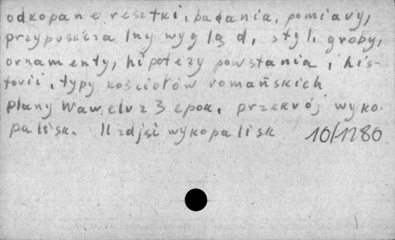 odkopane resztki, badania, pomiary,
przypuszczalny wygląd, styl, groby,
ornamenty, hipotezy powstania, his-
torii, typy kościołów romańskich
plany Wawelu z 3 epok, przekrój wyko-
palisk. 11 zdjęć wykopalisk 16/1286